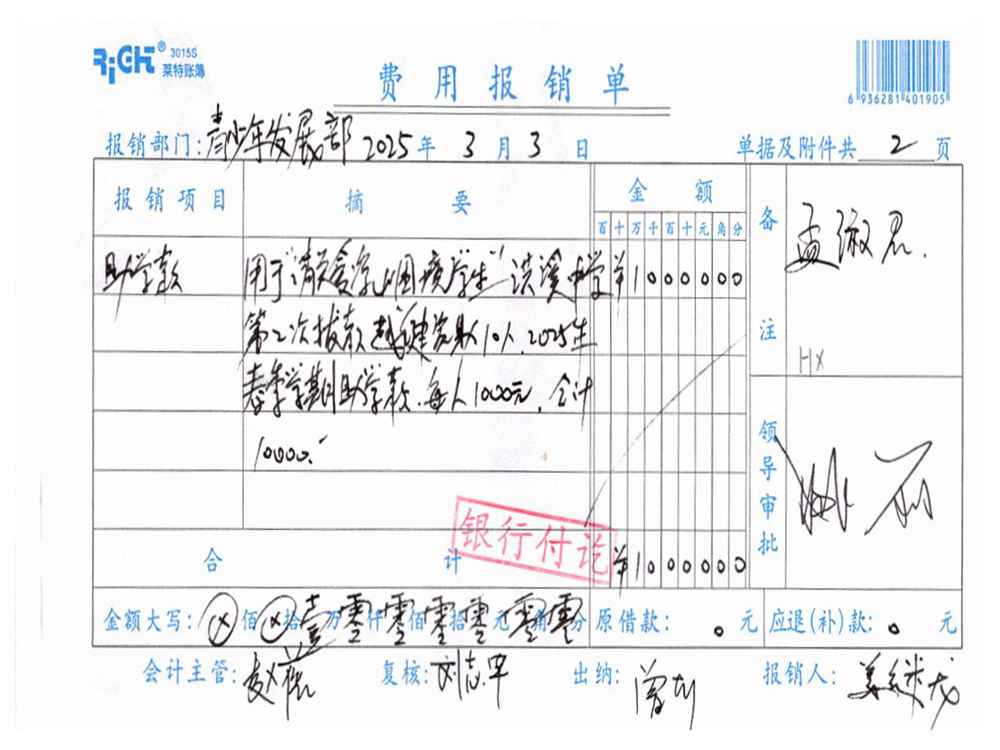 RiGHT® 3015S
莱特账簿
费用报销单
6 936281 401905
报销部门: 青少年发展部 2025 年 3 月 3 日
单据及附件共 2 页
报销项目 摘要 金额 备注
百 十 万 千 百 十 元 角 分
助学款 用于 困境学生 洪溪中学 ¥1000000
第二次拨款 10人.2025年
春季学期助学款.每人1000元,合计
10000.
HX
领导审批
银行付讫
合计 ¥1000000
金额大写: ⊗ 佰 ⊗ 拾 壹 万 零 仟 零 佰 零 拾 零 元 零 角 零 分
原借款: 0 元 应退(补)款: 0 元
会计主管: 复核: 出纳: 报销人: